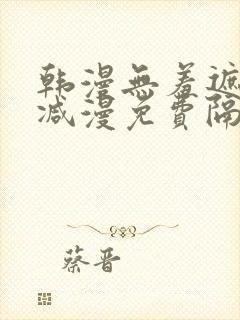 韩漫無羞遮
减漫免費隔
蔡晋